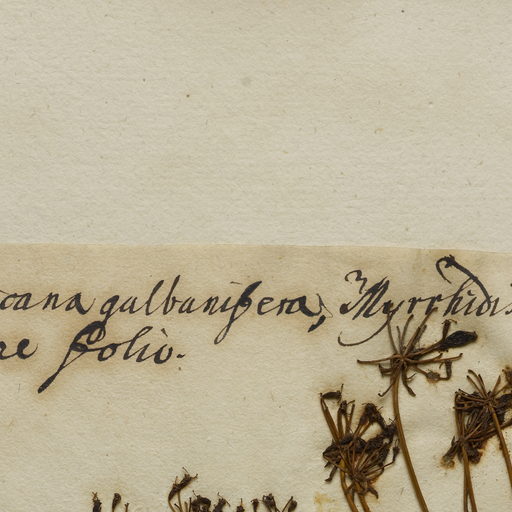 cana galbanifera, Myrrhidis
re folio.